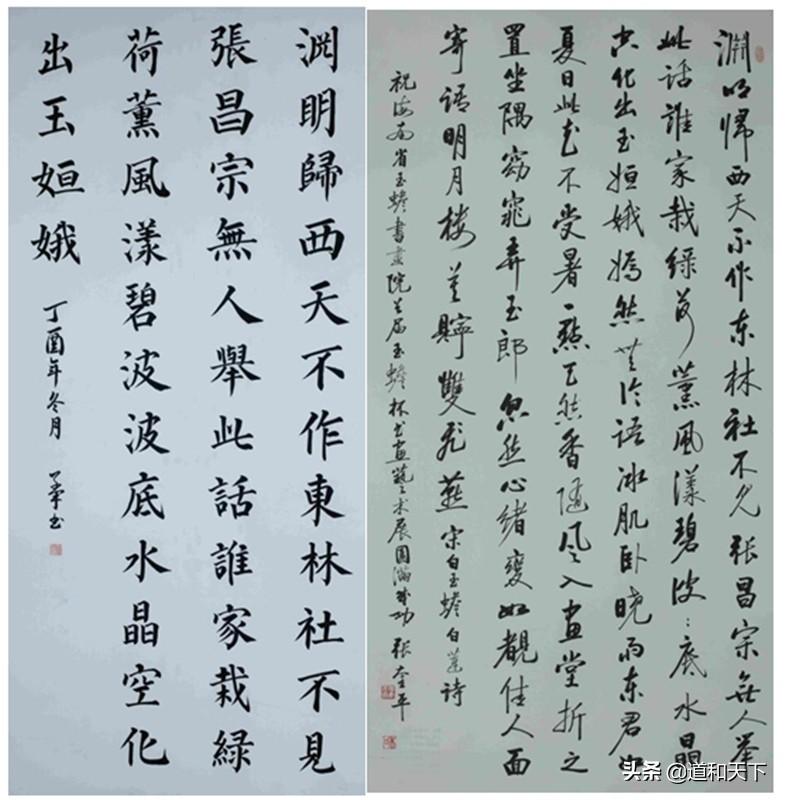 渊明歸西天不作東林社不見
張昌宗無人舉此話誰家栽綠
荷薰風漾碧波波底水晶空化
出玉姮娥
丁酉年冬月
渊明歸西天不作东林社不见張昌宗無人举
此话誰家栽绿荷薰風漾碧波:底水晶
空化出玉姮娥嫣然共伶语冰肌卧晓雨东君
夏日此花不受暑一點天然香隨风入画堂折之
置坐隅窈窕弄玉郎忽然心緒變如覩佳人面
寄语明月楼莫賦雙飛燕 宋白玉蟾白莲诗
祝海南省玉蟾書畫院首届玉蟾杯书画藝术展圆满成功 張奎平
头条 @道和天下